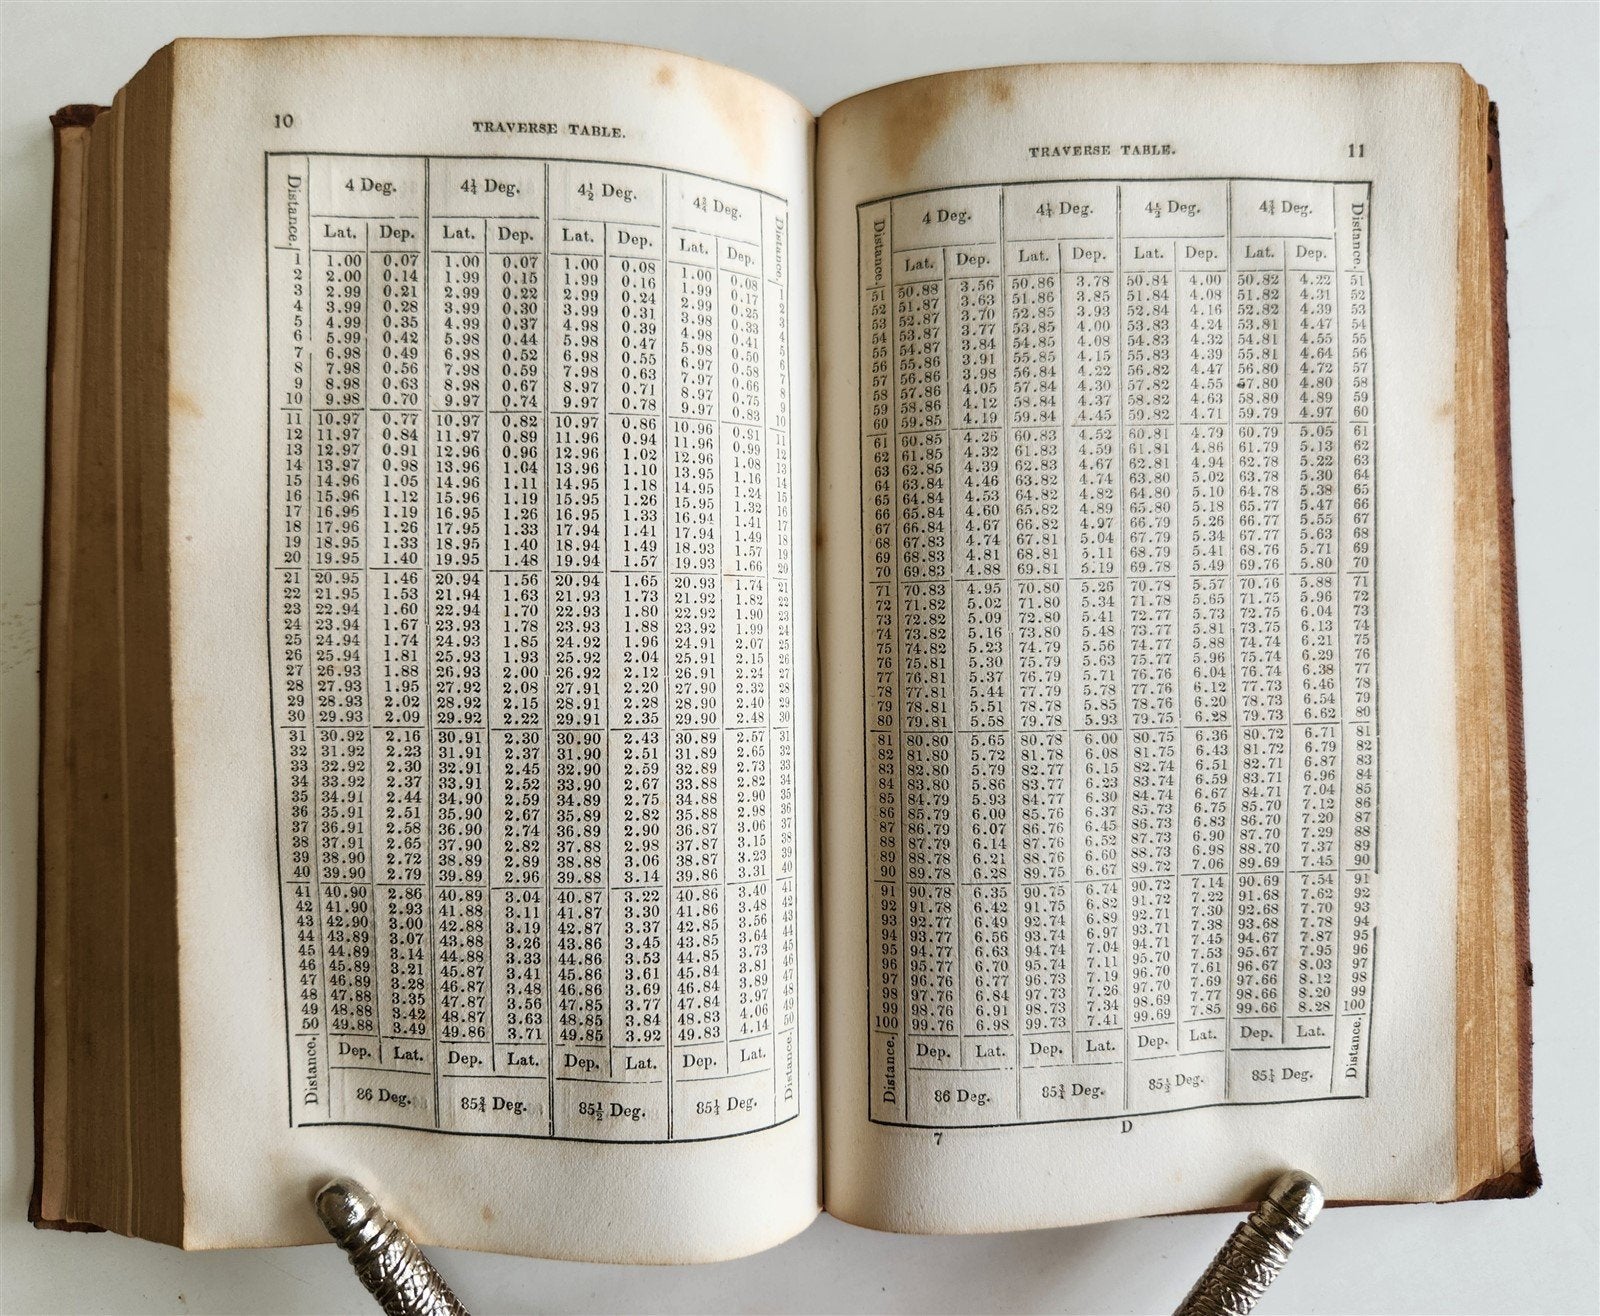 10
TRAVERSE TABLE.
Distance. 4 Deg. 4¼ Deg. 4½ Deg. 4¾ Deg. Distance.
Lat. Dep. Lat. Dep. Lat. Dep. Lat. Dep.
1 1.00 0.07 1.00 0.07 1.00 0.08 1.00 0.08 1
2 2.00 0.14 1.99 0.15 1.99 0.16 1.99 0.17 2
3 2.99 0.21 2.99 0.22 2.99 0.24 2.99 0.25 3
4 3.99 0.28 3.99 0.30 3.99 0.31 3.98 0.33 4
5 4.99 0.35 4.99 0.37 4.98 0.39 4.98 0.41 5
6 5.99 0.42 5.98 0.44 5.98 0.47 5.98 0.50 6
7 6.98 0.49 6.98 0.52 6.98 0.55 6.97 0.58 7
8 7.98 0.56 7.98 0.59 7.98 0.63 7.97 0.66 8
9 8.98 0.63 8.98 0.67 8.97 0.71 8.97 0.75 9
10 9.98 0.70 9.97 0.74 9.97 0.78 9.97 0.83 10
11 10.97 0.77 10.97 0.82 10.97 0.86 10.96 0.91 11
12 11.97 0.84 11.97 0.89 11.96 0.94 11.96 0.99 12
13 12.97 0.91 12.96 0.96 12.96 1.02 12.96 1.08 13
14 13.97 0.98 13.96 1.04 13.96 1.10 13.95 1.16 14
15 14.96 1.05 14.96 1.11 14.95 1.18 14.95 1.24 15
16 15.96 1.12 15.96 1.19 15.95 1.26 15.95 1.32 16
17 16.96 1.19 16.95 1.26 16.95 1.33 16.94 1.41 17
18 17.96 1.26 17.95 1.33 17.94 1.41 17.94 1.49 18
19 18.95 1.33 18.95 1.40 18.94 1.49 18.93 1.57 19
20 19.95 1.40 19.95 1.48 19.94 1.57 19.93 1.66 20
21 20.95 1.46 20.94 1.56 20.94 1.65 20.93 1.74 21
22 21.95 1.53 21.94 1.63 21.93 1.73 21.92 1.82 22
23 22.94 1.60 22.94 1.70 22.93 1.80 22.92 1.90 23
24 23.94 1.67 23.93 1.78 23.93 1.88 23.92 1.99 24
25 24.94 1.74 24.93 1.85 24.92 1.96 24.91 2.07 25
26 25.94 1.81 25.93 1.93 25.92 2.04 25.91 2.15 26
27 26.93 1.88 26.93 2.00 26.92 2.12 26.91 2.24 27
28 27.93 1.95 27.92 2.08 27.91 2.20 27.90 2.32 28
29 28.93 2.02 28.92 2.15 28.91 2.28 28.90 2.40 29
30 29.93 2.09 29.92 2.22 29.91 2.35 29.90 2.48 30
31 30.92 2.16 30.91 2.30 30.90 2.43 30.89 2.57 31
32 31.92 2.23 31.91 2.37 31.90 2.51 31.89 2.65 32
33 32.92 2.30 32.91 2.45 32.90 2.59 32.89 2.73 33
34 33.92 2.37 33.91 2.52 33.90 2.67 33.88 2.82 34
35 34.91 2.44 34.90 2.59 34.89 2.75 34.88 2.90 35
36 35.91 2.51 35.90 2.67 35.89 2.82 35.88 2.98 36
37 36.91 2.58 36.90 2.74 36.89 2.90 36.87 3.06 37
38 37.91 2.65 37.90 2.82 37.88 2.98 37.87 3.15 38
39 38.90 2.72 38.89 2.89 38.88 3.06 38.87 3.23 39
40 39.90 2.79 39.89 2.96 39.88 3.14 39.86 3.31 40
41 40.90 2.86 40.89 3.04 40.87 3.22 40.86 3.40 41
42 41.90 2.93 41.88 3.11 41.87 3.30 41.86 3.48 42
43 42.90 3.00 42.88 3.19 42.87 3.37 42.85 3.56 43
44 43.89 3.07 43.88 3.26 43.86 3.45 43.85 3.64 44
45 44.89 3.14 44.88 3.33 44.86 3.53 44.85 3.73 45
46 45.89 3.21 45.87 3.41 45.86 3.61 45.84 3.81 46
47 46.89 3.28 46.87 3.48 46.86 3.69 46.84 3.89 47
48 47.88 3.35 47.87 3.56 47.85 3.77 47.84 3.97 48
49 48.88 3.42 48.87 3.63 48.85 3.84 48.83 4.06 49
50 49.88 3.49 49.86 3.71 49.85 3.92 49.83 4.14 50
Distance. Dep. Lat. Dep. Lat. Dep. Lat. Dep. Lat. Distance.
86 Deg. 85¾ Deg. 85½ Deg. 85¼ Deg.
TRAVERSE TABLE.
11
Distance. 4 Deg. 4¼ Deg. 4½ Deg. 4¾ Deg. Distance.
Lat. Dep. Lat. Dep. Lat. Dep. Lat. Dep.
51 50.88 3.56 50.86 3.78 50.84 4.00 50.82 4.22 51
52 51.87 3.63 51.86 3.85 51.84 4.08 51.82 4.31 52
53 52.87 3.70 52.85 3.93 52.84 4.16 52.82 4.39 53
54 53.87 3.77 53.85 4.00 53.83 4.24 53.81 4.47 54
55 54.87 3.84 54.85 4.08 54.83 4.32 54.81 4.55 55
56 55.86 3.91 55.85 4.15 55.83 4.39 55.81 4.64 56
57 56.86 3.98 56.84 4.22 56.82 4.47 56.80 4.72 57
58 57.86 4.05 57.84 4.30 57.82 4.55 57.80 4.80 58
59 58.86 4.12 58.84 4.37 58.82 4.63 58.80 4.89 59
60 59.85 4.19 59.84 4.45 59.82 4.71 59.79 4.97 60
61 60.85 4.26 60.83 4.52 60.81 4.79 60.79 5.05 61
62 61.85 4.32 61.83 4.59 61.81 4.86 61.79 5.13 62
63 62.85 4.39 62.83 4.67 62.81 4.94 62.78 5.22 63
64 63.84 4.46 63.82 4.74 63.80 5.02 63.78 5.30 64
65 64.84 4.53 64.82 4.82 64.80 5.10 64.78 5.38 65
66 65.84 4.60 65.82 4.89 65.80 5.18 65.77 5.47 66
67 66.84 4.67 66.82 4.97 66.79 5.26 66.77 5.55 67
68 67.83 4.74 67.81 5.04 67.79 5.34 67.77 5.63 68
69 68.83 4.81 68.81 5.11 68.79 5.41 68.76 5.71 69
70 69.83 4.88 69.81 5.19 69.78 5.49 69.76 5.80 70
71 70.83 4.95 70.80 5.26 70.78 5.57 70.76 5.88 71
72 71.82 5.02 71.80 5.34 71.78 5.65 71.75 5.96 72
73 72.82 5.09 72.80 5.41 72.77 5.73 72.75 6.04 73
74 73.82 5.16 73.80 5.48 73.77 5.81 73.75 6.13 74
75 74.82 5.23 74.79 5.56 74.77 5.88 74.74 6.21 75
76 75.81 5.30 75.79 5.63 75.77 5.96 75.74 6.29 76
77 76.81 5.37 76.79 5.71 76.76 6.04 76.74 6.38 77
78 77.81 5.44 77.79 5.78 77.76 6.12 77.73 6.46 78
79 78.81 5.51 78.78 5.85 78.76 6.20 78.73 6.54 79
80 79.81 5.58 79.78 5.93 79.75 6.28 79.73 6.62 80
81 80.80 5.65 80.78 6.00 80.75 6.36 80.72 6.71 81
82 81.80 5.72 81.78 6.08 81.75 6.43 81.72 6.79 82
83 82.80 5.79 82.77 6.15 82.74 6.51 82.71 6.87 83
84 83.80 5.86 83.77 6.23 83.74 6.59 83.71 6.96 84
85 84.79 5.93 84.77 6.30 84.74 6.67 84.71 7.04 85
86 85.79 6.00 85.76 6.37 85.73 6.75 85.70 7.12 86
87 86.79 6.07 86.76 6.45 86.73 6.83 86.70 7.20 87
88 87.79 6.14 87.76 6.52 87.73 6.90 87.70 7.29 88
89 88.78 6.21 88.76 6.60 88.73 6.98 88.70 7.37 89
90 89.78 6.28 89.75 6.67 89.72 7.06 89.69 7.45 90
91 90.78 6.35 90.75 6.74 90.72 7.14 90.69 7.54 91
92 91.78 6.42 91.75 6.82 91.72 7.22 91.68 7.62 92
93 92.77 6.49 92.74 6.89 92.71 7.30 92.68 7.70 93
94 93.77 6.56 93.74 6.97 93.71 7.38 93.68 7.78 94
95 94.77 6.63 94.74 7.04 94.71 7.45 94.67 7.87 95
96 95.77 6.70 95.74 7.11 95.70 7.53 95.67 7.95 96
97 96.76 6.77 96.73 7.19 96.70 7.61 96.67 8.03 97
98 97.76 6.84 97.73 7.26 97.70 7.69 97.66 8.12 98
99 98.76 6.91 98.73 7.34 98.69 7.77 98.66 8.20 99
100 99.76 6.98 99.73 7.41 99.69 7.85 99.66 8.28 100
Distance. Dep. Lat. Dep. Lat. Dep. Lat. Dep. Lat. Distance.
86 Deg. 85¾ Deg. 85½ Deg. 85¼ Deg.
7 D